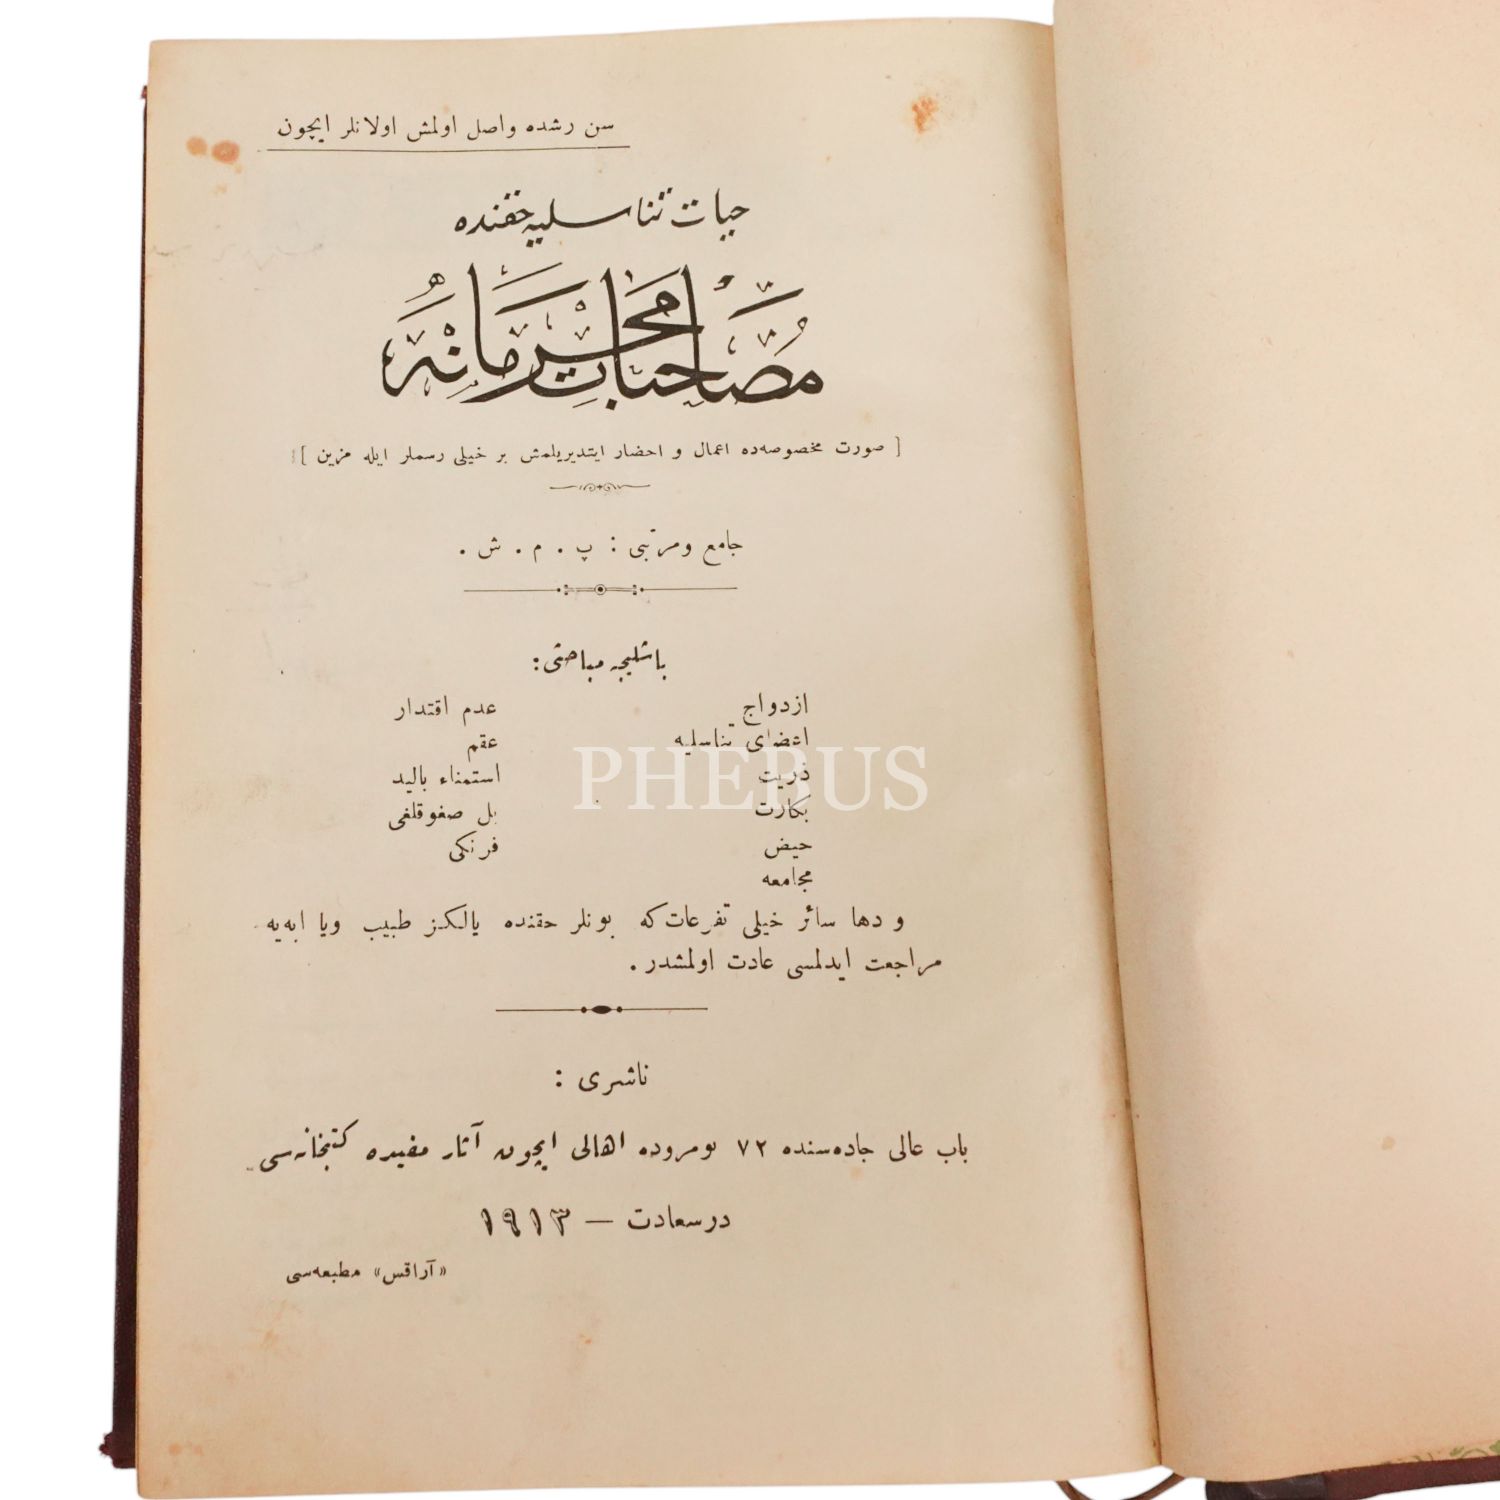 سن رشده واصل اولمش اولانلر ایچون
حیات تناسلیه حقنده
مصاحبات محرمانه
[ صورت مخصوصه‌ده اعمال و احضار ایتدیریلمش بر خیلی رسملر ایله مزین ]
جامع و مرتبی : پ . م . ش .
باشلیجه مباحثی :
ازدواج
اعضای تناسلیه
ذریت
بکارت
حیض
مجامعه
عدم اقتدار
عقم
استمناء بالید
بل صغوقلغی
فرنکی
و دها سائر خیلی تفرعات که بونلر حقنده یالکز طبیب ویا ابه‌یه
مراجعت ایدلمسی عادت اولمشدر .
ناشری :
باب عالی جاده‌سنده ٧٢ نومروده اهالی ایچون آثار مفیده کتبخانه‌سی
درسعادت — ١٩١٣
«آراقس» مطبعه‌سی
PHEBUS